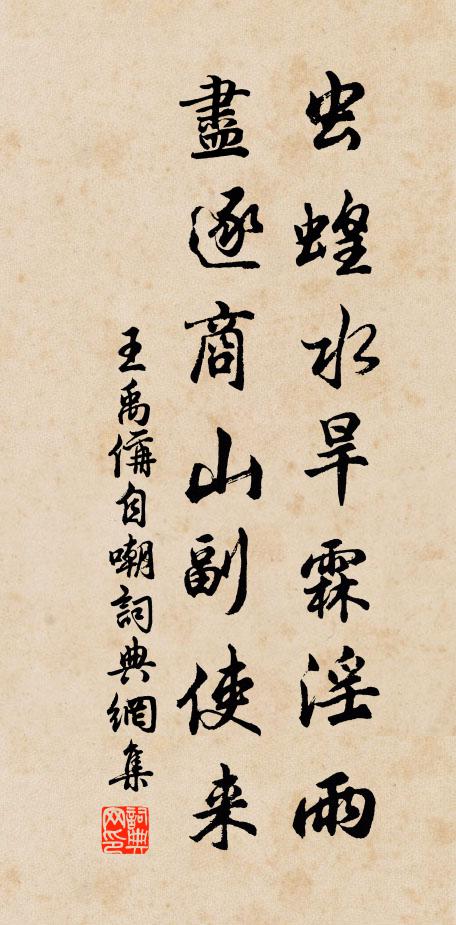 虫蝗水旱霖淫雨
盡逐商山副使来
王禹偁自嘲詞典網集
詞典网印